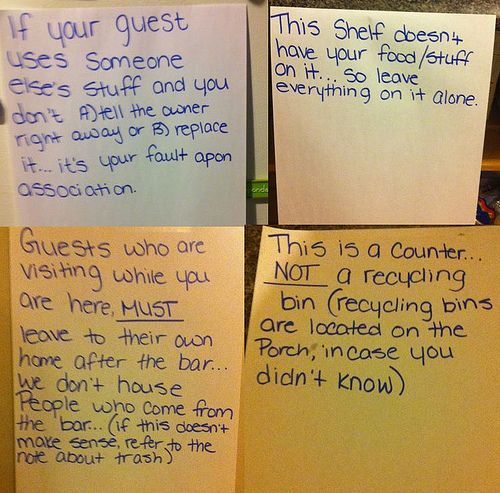 If your guest
uses someone
else's stuff and you
don't A) tell the owner
right away or B) replace
it... it's your fault apon
association.
This Shelf doesn't
have your food/stuff
on it... so leave
everything on it alone.
Guests who are
visiting while you
are here, MUST
leave to their own
home after the bar...
we don't house
People who come from
the bar... (if this doesn't
make sense, refer to the
note about trash)
This is a Counter...
NOT a recycling
bin (recycling bins
are located on the
Porch, incase you
didn't know)